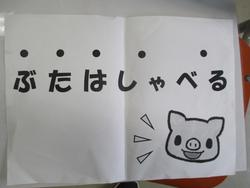 ぶたはしゃべる